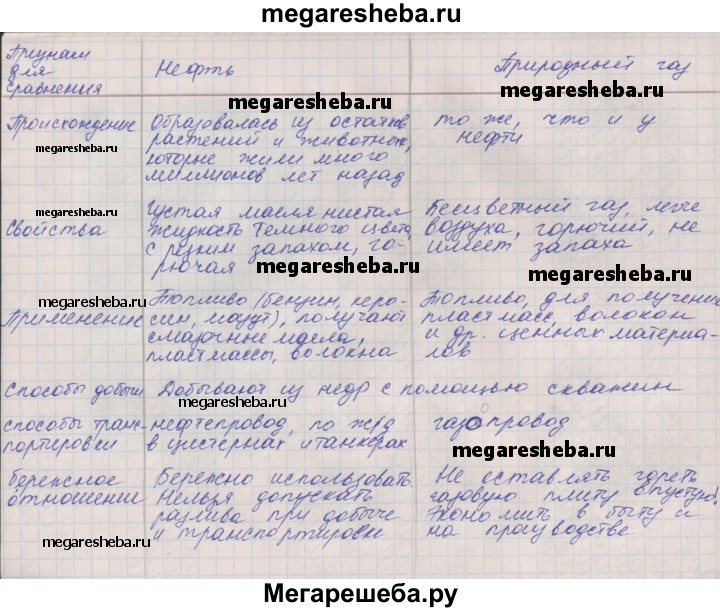 megaresheba.ru
Признаки для сравнения
Нефть
Природный газ
megaresheba.ru
megaresheba.ru
Происхождение
Образовалась из остатков
растений и животных,
которые жили много
миллионов лет назад
то же, что и у
нефти
megaresheba.ru
megaresheba.ru
Свойства
Густая маслянистая
жидкость темного цвета
с резким запахом, го-
рючая
Бесцветный газ, легче
воздуха, горючий, не
имеет запаха
megaresheba.ru
megaresheba.ru
megaresheba.ru
Применение
Топливо (бензин, керо-
син, мазут), получают
смазочные масла,
пластмассы, волокна
Топливо, для получения
пластмасс, волокон
и др. ценных материа-
лов
Способы добычи
Добывают из недр с помощью скважин
megaresheba.ru
способы транс-
портировки
нефтепровод, по ж/д
в цистернах и танкерах
газопровод
megaresheba.ru
бережное
отношение
Бережно использовать.
Нельзя допускать
разлива при добыче
и транспортировки
Не оставлять гореть
газовую плиту впустую!
Экономить в быту и
на производстве
megaresheba.ru
megaresheba.ru
Мегарешеба.ру